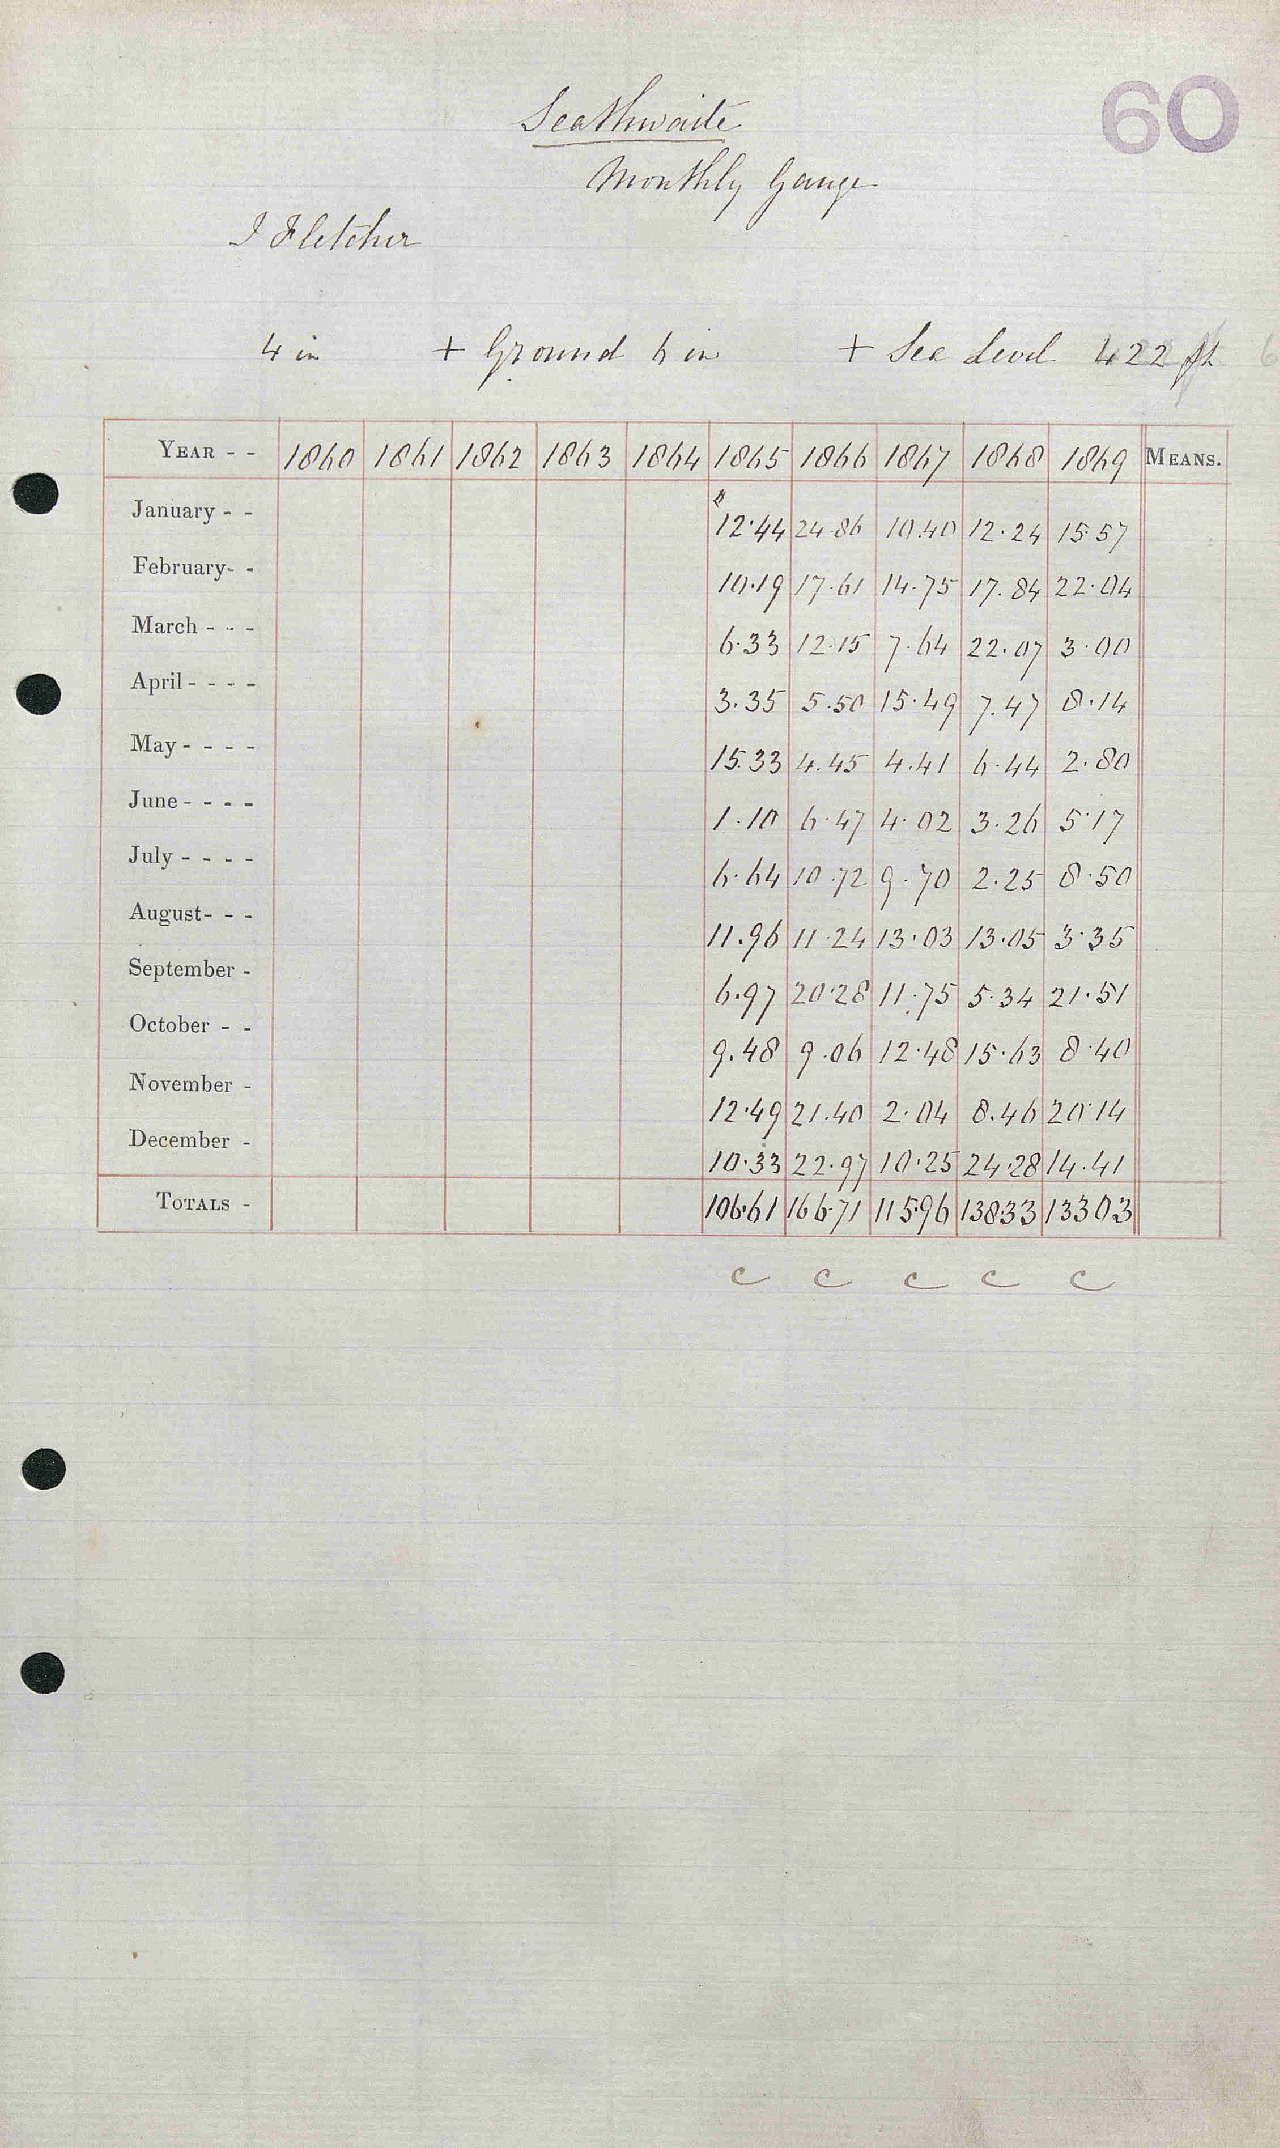 60
Seathwaite
Monthly Gauge
I Fletcher
4 in + Ground 6 in + Sea Level 422 ft
YEAR - - 1860 1861 1862 1863 1864 1865 1866 1867 1868 1869 MEANS.
January - - 12.44 24.86 10.40 12.24 15.57
February - - 10.19 17.61 14.75 17.84 22.04
March - - - 6.33 12.15 7.64 22.07 3.00
April - - - - 3.35 5.50 15.49 7.47 8.14
May - - - - 15.33 4.45 4.41 6.44 2.80
June - - - - 1.10 6.47 4.02 3.26 5.17
July - - - - 6.64 10.72 9.70 2.25 8.50
August - - - 11.96 11.24 13.03 13.05 3.35
September - 6.97 20.28 11.75 5.34 21.51
October - - 9.48 9.06 12.48 15.63 8.40
November - 12.49 21.40 2.04 8.46 20.14
December - 10.33 22.97 10.25 24.28 14.41
TOTALS - 106.61 166.71 115.96 138.33 133.03
c c c c c